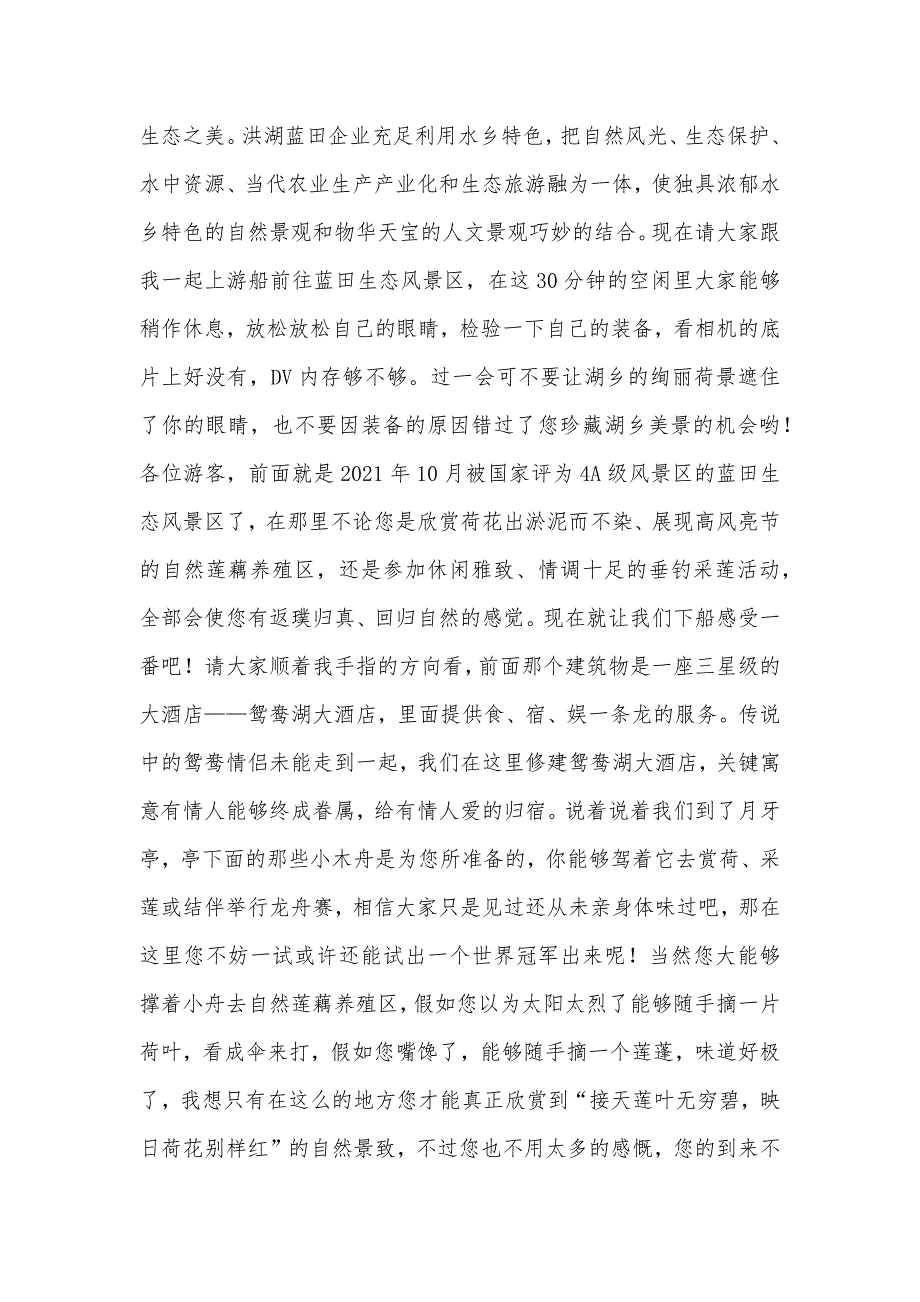 生态之美。洪湖蓝田企业充足利用水乡特色，把自然风光、生态保护、
水中资源、当代农业生产产业化和生态旅游融为一体，使独具浓郁水
乡特色的自然景观和物华天宝的人文景观巧妙的结合。现在请大家跟
我一起上游船前往蓝田生态风景区，在这 30 分钟的空闲里大家能够
稍作休息，放松放松自己的眼睛，检验一下自己的装备，看相机的底
片上好没有，DV 内存够不够。过一会可不要让湖乡的绚丽荷景遮住
了你的眼睛，也不要因装备的原因错过了您珍藏湖乡美景的机会哟！
各位游客，前面就是 2021 年 10 月被国家评为 4A 级风景区的蓝田生
态风景区了，在那里不论您是欣赏荷花出淤泥而不染、展现高风亮节
的自然莲藕养殖区，还是参加休闲雅致、情调十足的垂钓采莲活动，
全部会使您有返璞归真、回归自然的感觉。现在就让我们下船感受一
番吧！请大家顺着我手指的方向看，前面那个建筑物是一座三星级的
大酒店——鸳鸯湖大酒店，里面提供食、宿、娱一条龙的服务。传说
中的鸳鸯情侣未能走到一起，我们在这里修建鸳鸯湖大酒店，关键寓
意有情人能够终成眷属，给有情人爱的归宿。说着说着我们到了月牙
亭，亭下面的那些小木舟是为您所准备的，你能够驾着它去赏荷、采
莲或结伴举行龙舟赛，相信大家只是见过还从未亲身体味过吧，那在
这里您不妨一试或许还能试出一个世界冠军出来呢！当然您大能够
撑着小舟去自然莲藕养殖区，假如您以为太阳太烈了能够随手摘一片
荷叶，看成伞来打，假如您嘴馋了，能够随手摘一个莲蓬，味道好极
了，我想只有在这么的地方您才能真正欣赏到“接天莲叶无穷碧，映
日荷花别样红”的自然景致，不过您也不用太多的感慨，您的到来不